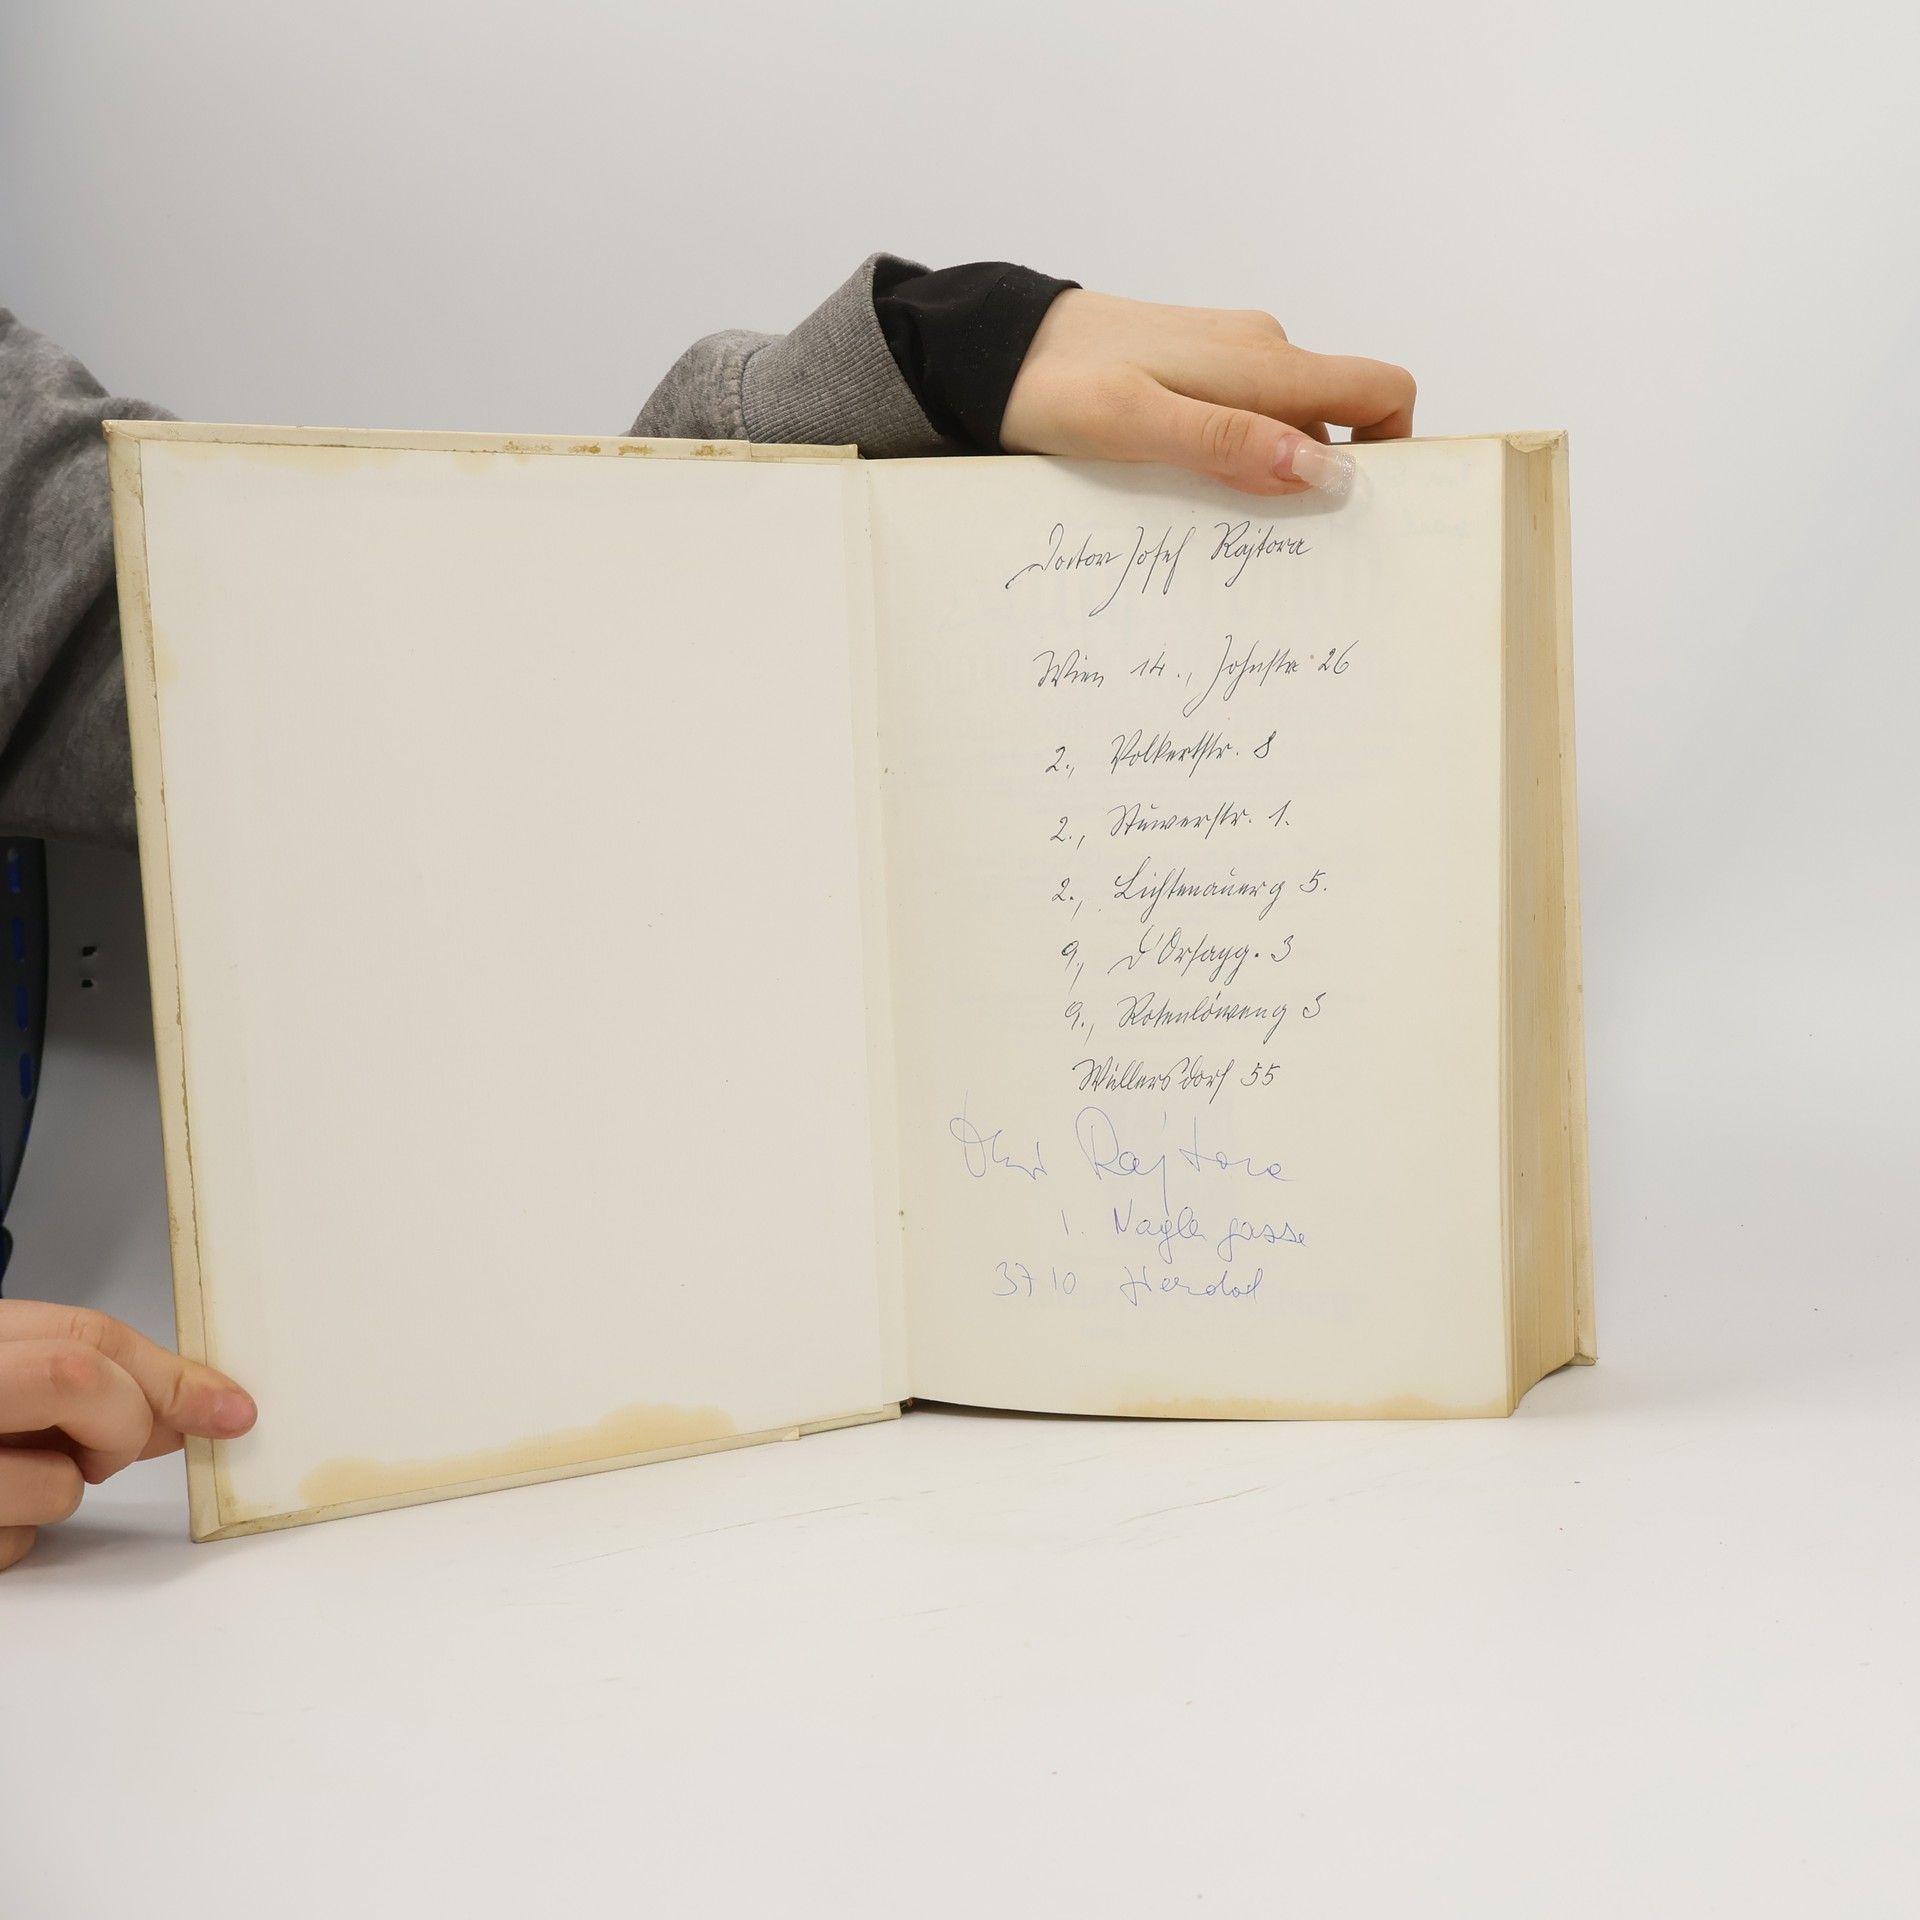 Doctor Josef Rajtora
Wien 14., Johnstr 26
2., Volkertstr. 8
2., Stuwerstr. 1.
2., Lichtenauerg 5.
9., D'Orsayg. 3
9., Rotenlöweng 3
Wullersdorf 55
Rajtora
1. Nagler gasse
3710